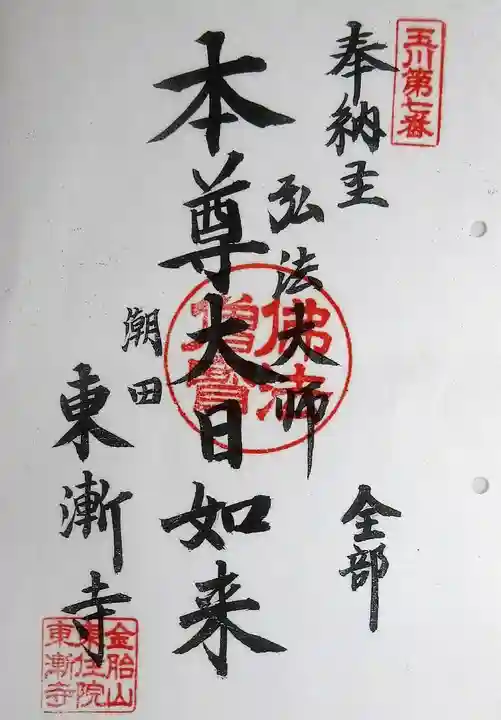 玉川第七番
奉納主
弘法大師
全部
本尊大日如来
佛法僧寶
潮田
東漸寺
金胎山
東住院
東漸寺